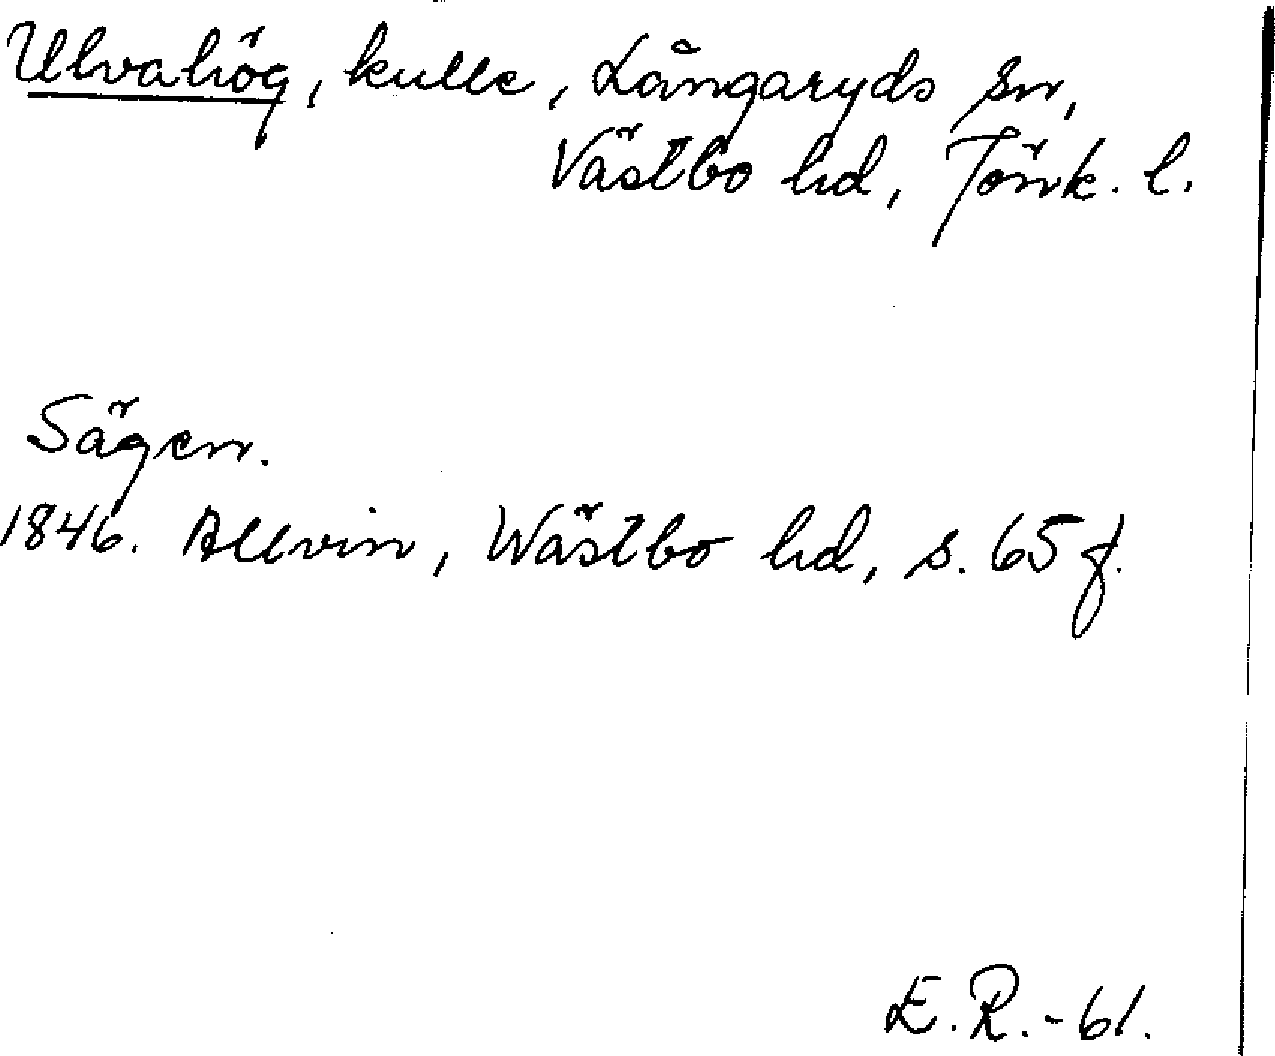 Ulvahög, kulle, Långaryds sn,
Västbo hd, Jönk. l.
Sägen.
1846. Allvin, Wästbo hd, s. 65 f.
E.R.-61.